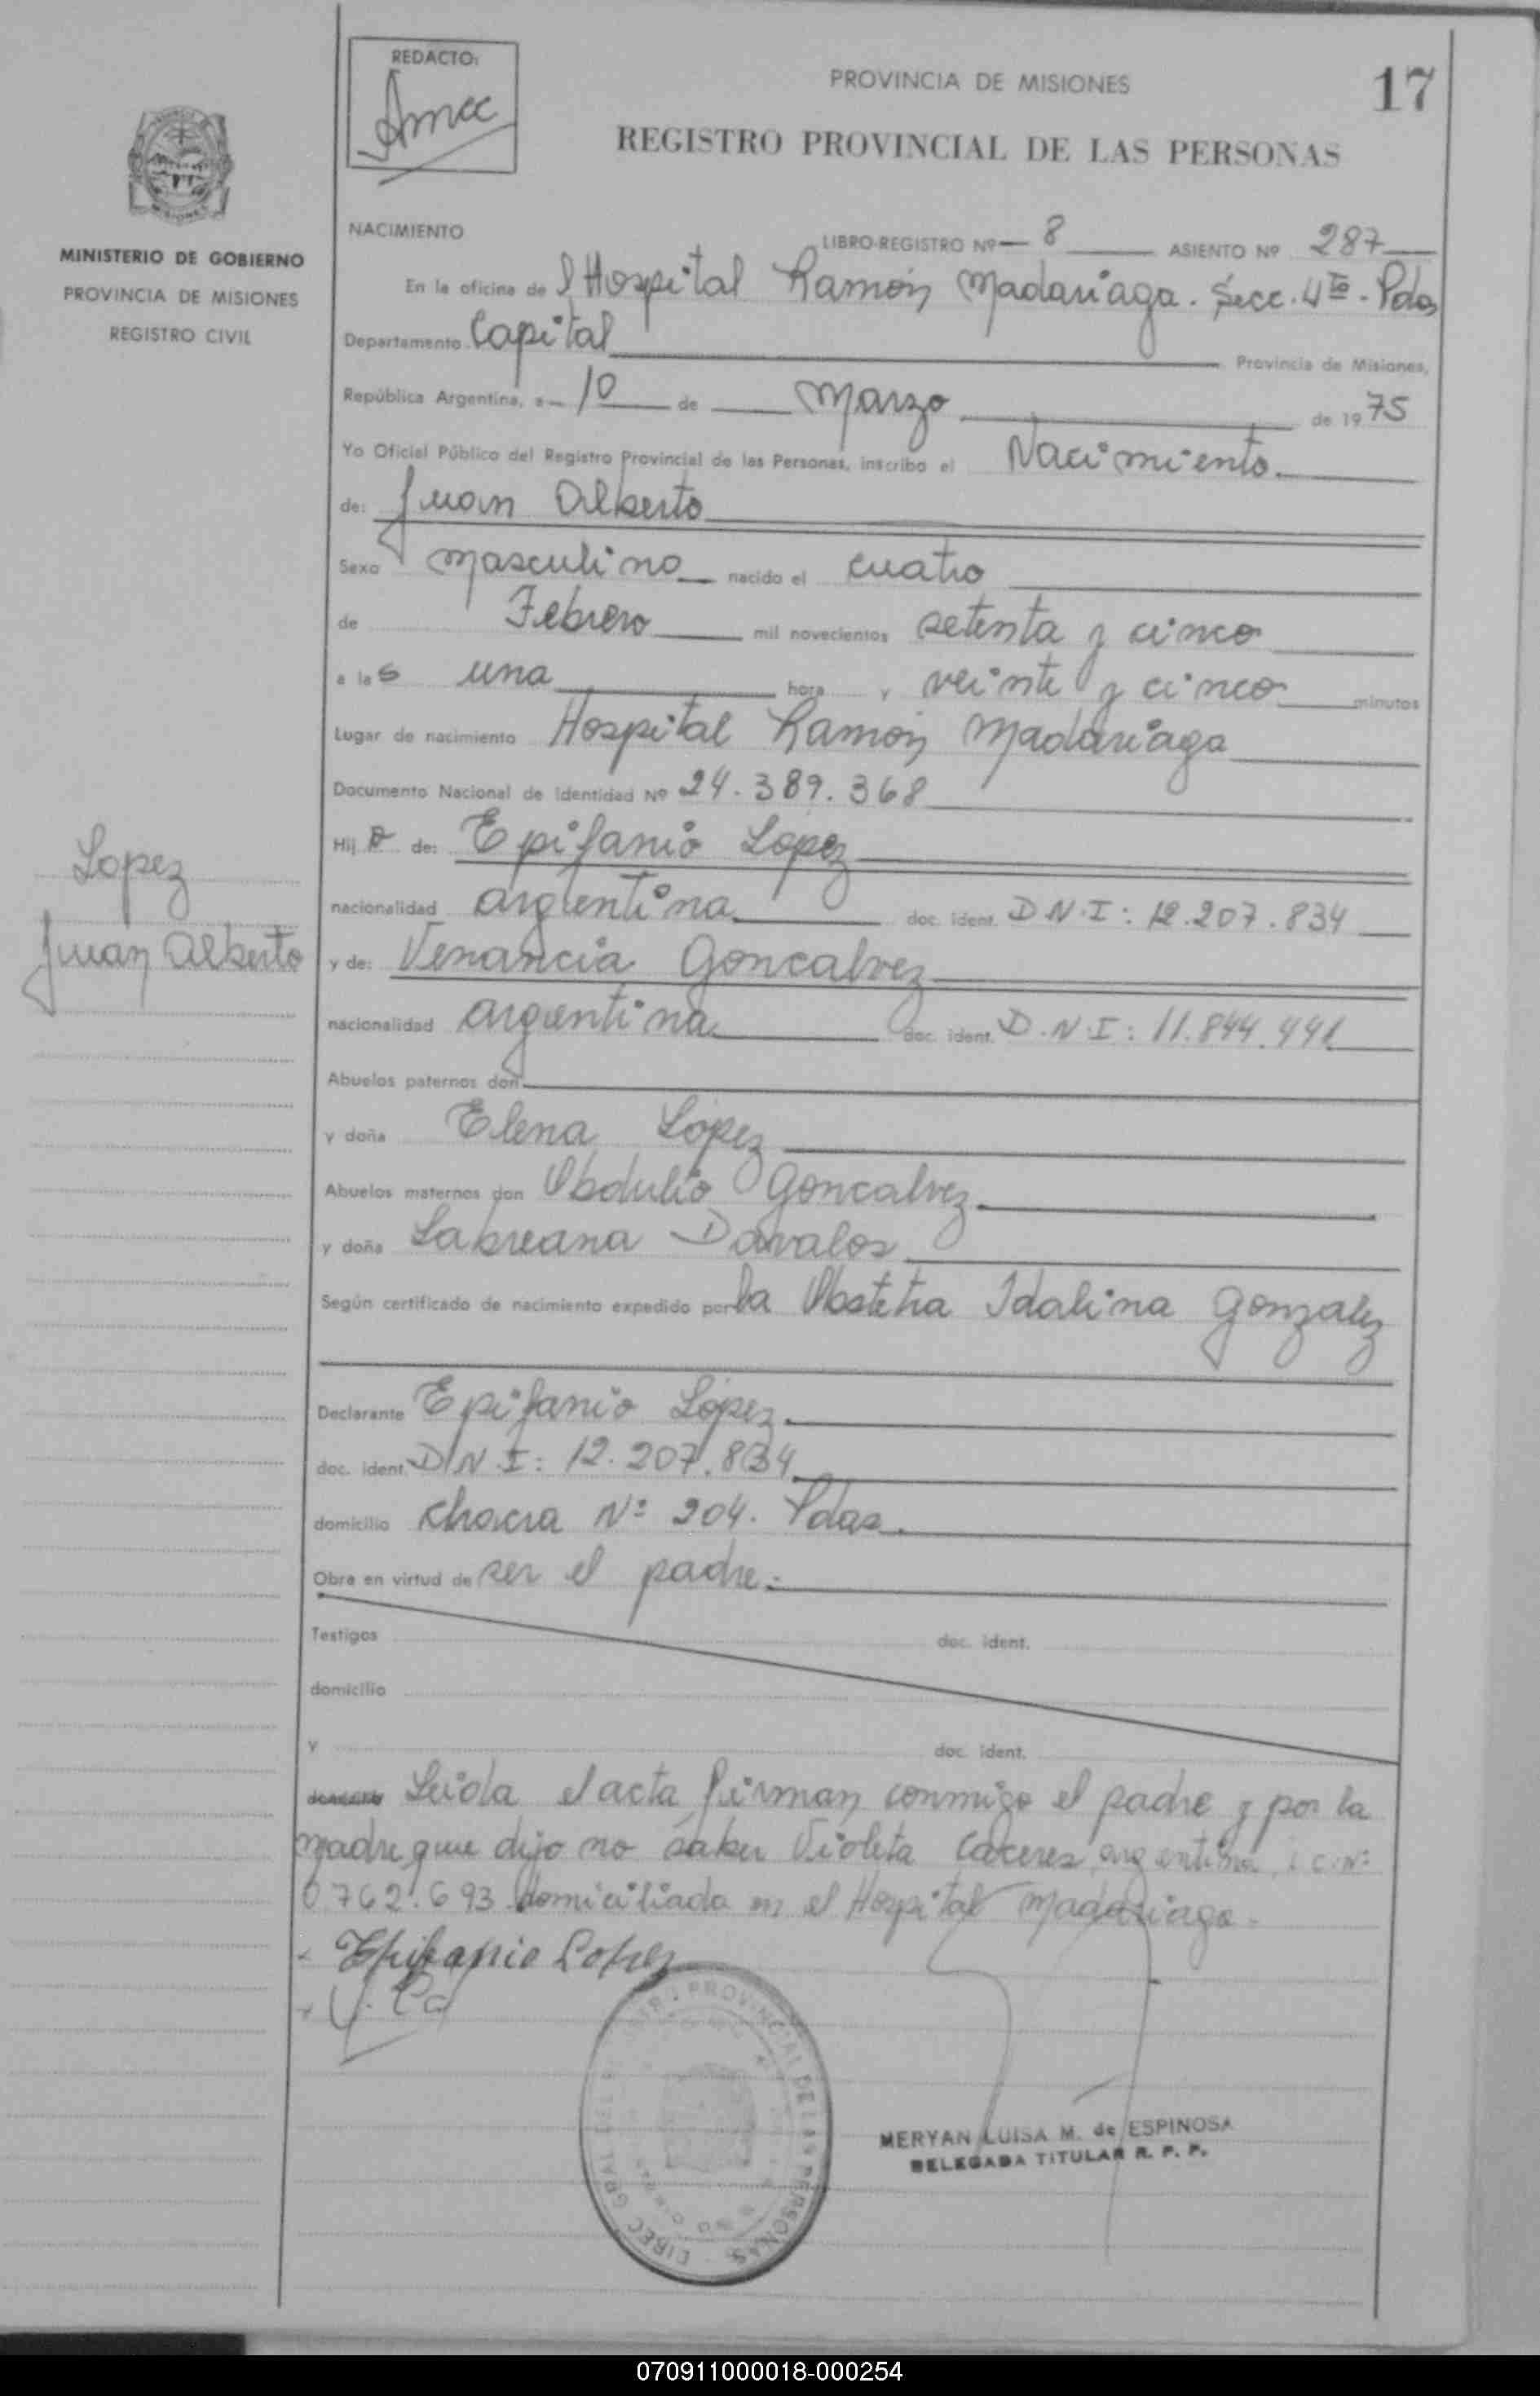 REDACTO:
PROVINCIA DE MISIONES
17
REGISTRO PROVINCIAL DE LAS PERSONAS
MISIONES
MINISTERIO DE GOBIERNO
PROVINCIA DE MISIONES
REGISTRO CIVIL
NACIMIENTO
LIBRO-REGISTRO Nº 8 ASIENTO Nº 287
En la oficina del Hospital Ramón Madariaga. Secc. 4ta - Pdas
Departamento Capital Provincia de Misiones,
República Argentina, a 10 de Marzo de 1975
Yo Oficial Público del Registro Provincial de las Personas, inscribo el Nacimiento.
de: Juan Alberto
Sexo masculino nacido el cuatro
de Febrero mil novecientos setenta y cinco
a las una hora y veinte y cinco minutos
Lugar de nacimiento Hospital Ramón Madariaga
Documento Nacional de Identidad Nº 24.389.368
Hijo de: Epifanio Lopez
Lopez
Juan Alberto
nacionalidad argentina doc. ident. D.N.I: 12.207.834
y de: Venancia Goncalvez
nacionalidad argentina doc. ident. D.N.I: 11.844.441
Abuelos paternos don
y doña Elena Lopez
Abuelos maternos don Obdulio Goncalvez
y doña Labreana Davalos
Según certificado de nacimiento expedido por la Obstetra Idalina Gonzalez
Declarante Epifanio López.
doc. ident. D.N.I: 12.207.834
domicilio Chacra Nº 204. Pdas.
Obra en virtud de ser el padre.-
Testigos doc. ident.
domicilio
y doc. ident.
Leida el acta firman conmigo el padre y por la
madre que dijo no saber Violeta Caceres, argentina, L.C.Nº
0.762.693 domiciliada en el Hospital Madariaga.
Epifanio Lopez
PROVINCIAL DE LAS PERSONAS
DIREC. GRAL
MERYAN LUISA M. de ESPINOSA
DELEGADA TITULAR R. P. P.
070911000018-000254